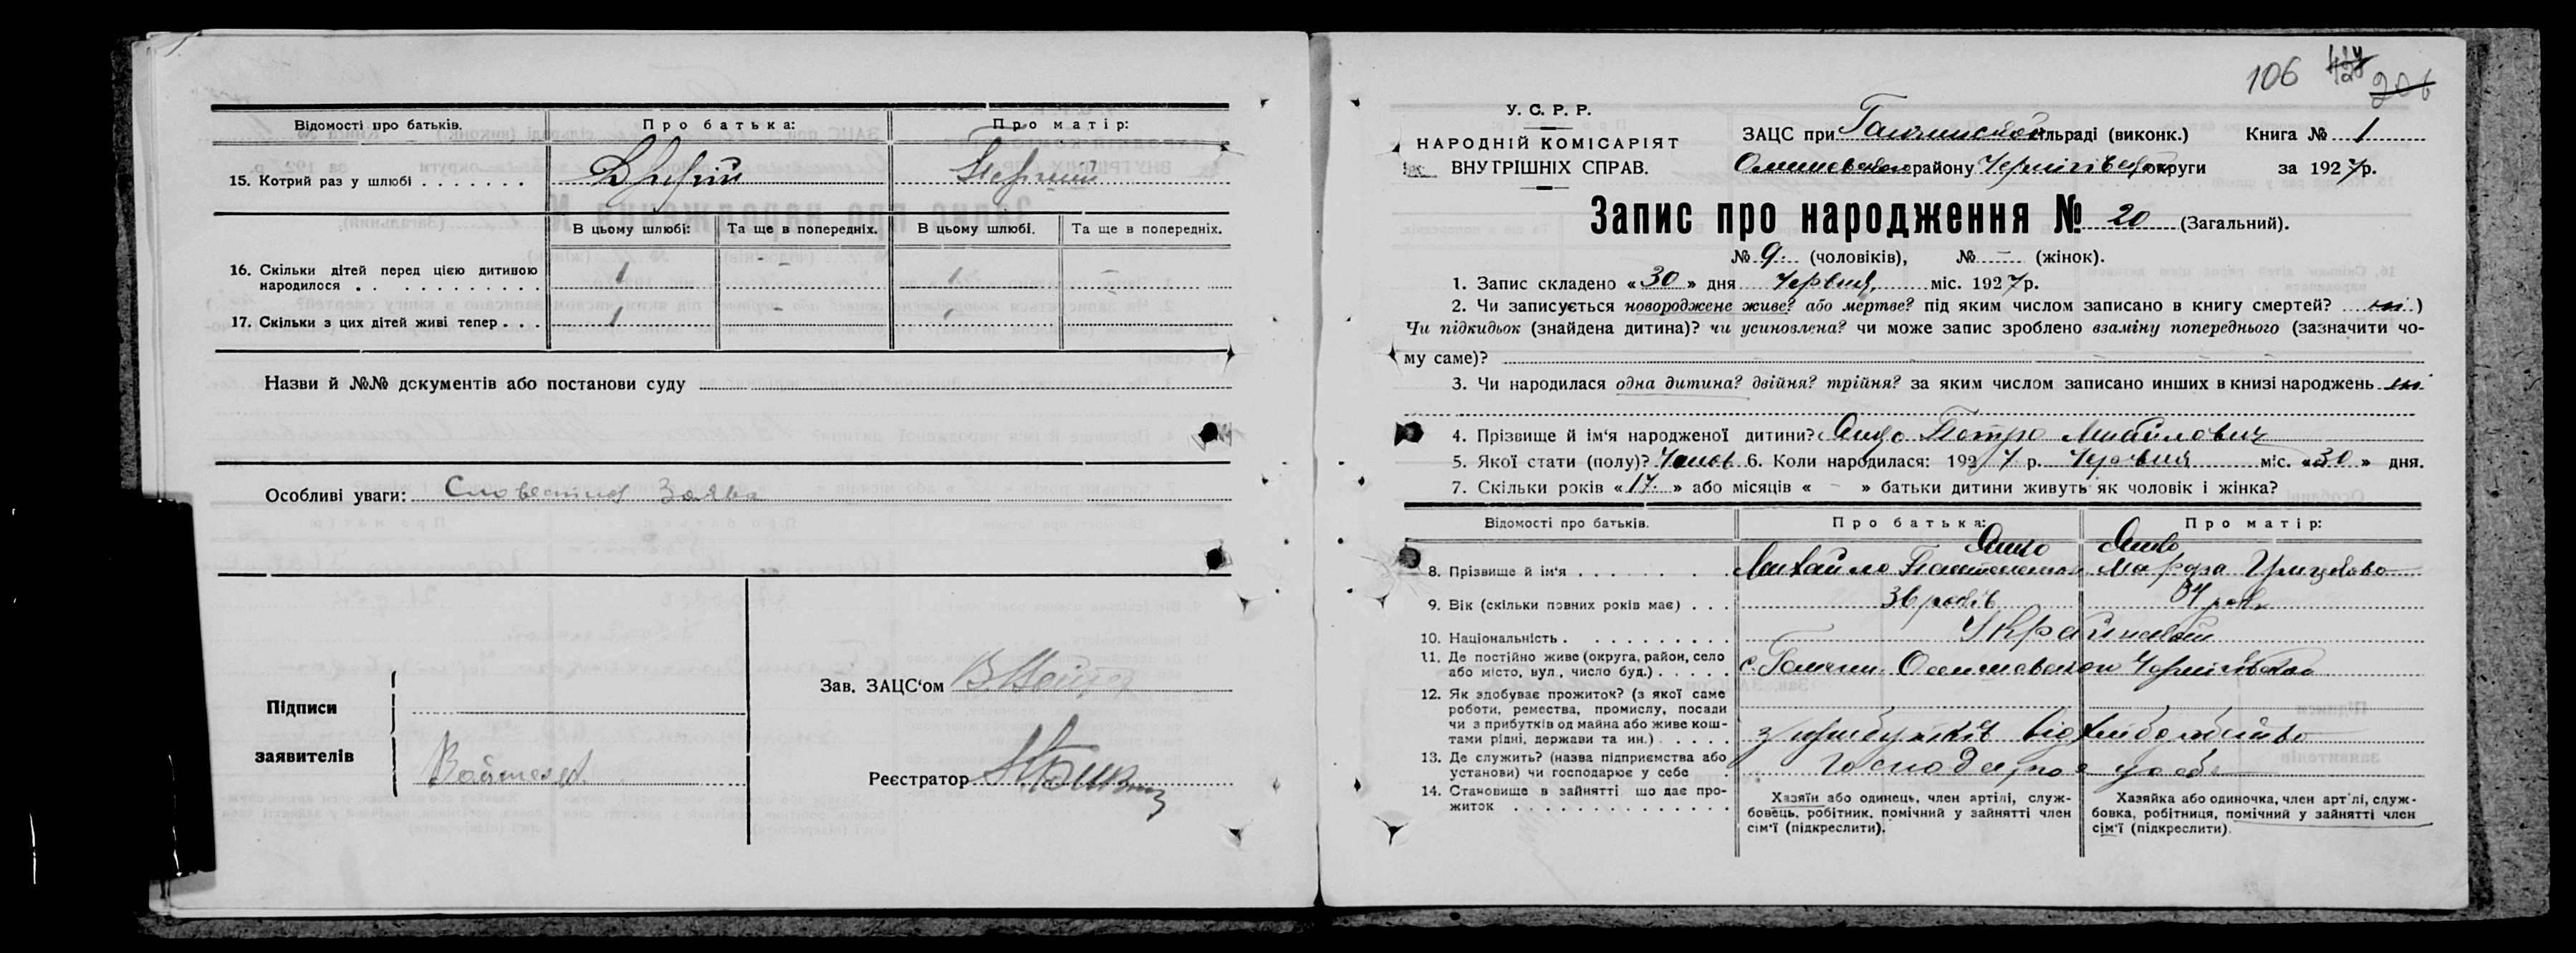 Відомості про батьків. Про батька: Про матір:
15. Котрий раз у шлюбі . . . . . . . Другий Перший
В цьому шлюбі: Та ще в попередніх. В цьому шлюбі. Та ще в попередніх.
16. Скільки дітей перед цією дитиною
народилося . . . . . . . . . . . 1 – 1 –
17. Скільки з цих дітей живі тепер . . . 1 – 1
Назви й №№ документів або постанови суду
Особливі уваги: Словестна Заява
Зав. ЗАЦС'ом
Підписи
заявителів
Реєстратор
106
206
У. С. Р. Р.
НАРОДНІЙ КОМІСАРІЯТ
ВНУТРІШНІХ СПРАВ.
ЗАЦС при сільраді (виконк.) Книга № 1
району округи за 1927 р.
Запис про народження № 20 (Загальний).
№ 9 (чоловіків), № – (жінок).
1. Запис складено «30» дня Червня міс. 1927 р.
2. Чи записується новороджене живе? або мертве? під яким числом записано в книгу смертей? ні )
Чи підкидьок (знайдена дитина)? чи усиновлена? чи може запис зроблено взаміну попереднього (зазначити чо-
му саме)?
3. Чи народилася одна дитина? двійня? трійня? за яким числом записано инших в книзі народжень ні
4. Прізвище й ім'я народженої дитини? Петро Михайлович
5. Якої стати (полу)? Чолов 6. Коли народилася: 1927 р. Червня міс. «30» дня.
7. Скільки років «17» або місяців « – » батьки дитини живуть як чоловік і жінка?
Відомості про батьків. Про батька: Про матір:
8. Прізвище й ім'я . . . . . . . . Михайло Марфа
9. Вік (скільки повних років має) . . . 36 років 34 рок
10. Національність . . . . . . . . . .
11. Де постійно живе (округа, район, село
або місто, вул., число буд.) . . . . .
12. Як здобуває прожиток? (з якої саме
роботи, ремества, промислу, посади
чи з прибутків од майна або живе кош-
тами рідні, держави та ин.) . . . . . з прибутків від хліборобства
13. Де служить? (назва підприємства або
установи) чи господарює у себе . Господарює у себе
14. Становище в зайнятті що дає про-
житок . . . . . . . . . . . . . .
Хазяїн або одинець, член артілі, служ-
бовець, робітник, помічний у зайнятті член
сім'ї (підкреслити).
Хазяйка або одиночка, член арт'лі, служ-
бовка, робітниця, помічний у зайнятті член
сім'ї (підкреслити).